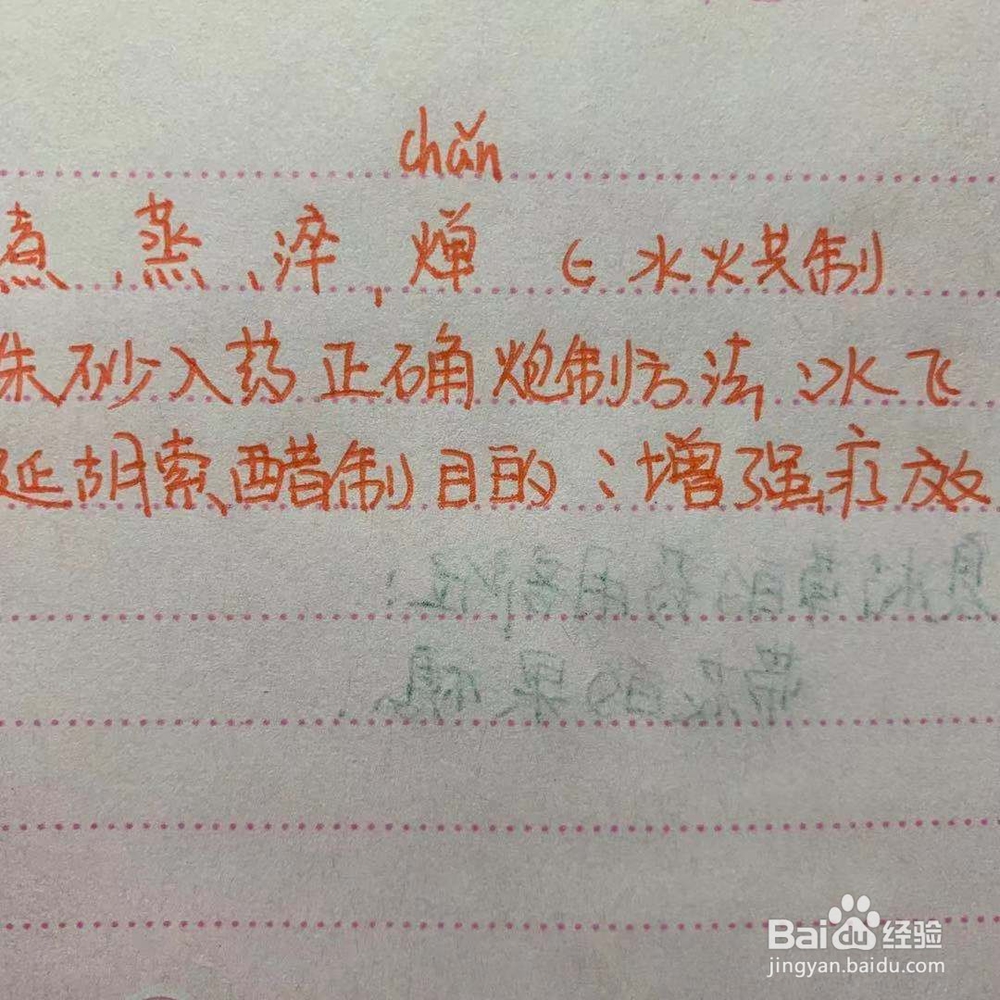 chǎn
煮、蒸、淬、燀 ∈ 水火共制
朱砂入药正确炮制方法:水飞
延胡索醋制目的:增强疗效
的药用部位:
带 的果穗
Baidu经验
jingyan.baidu.com